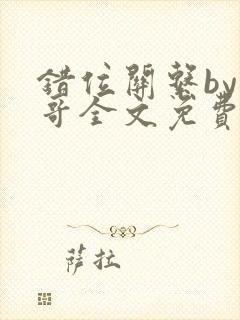 错位關繫by
哥全文免費
薩拉